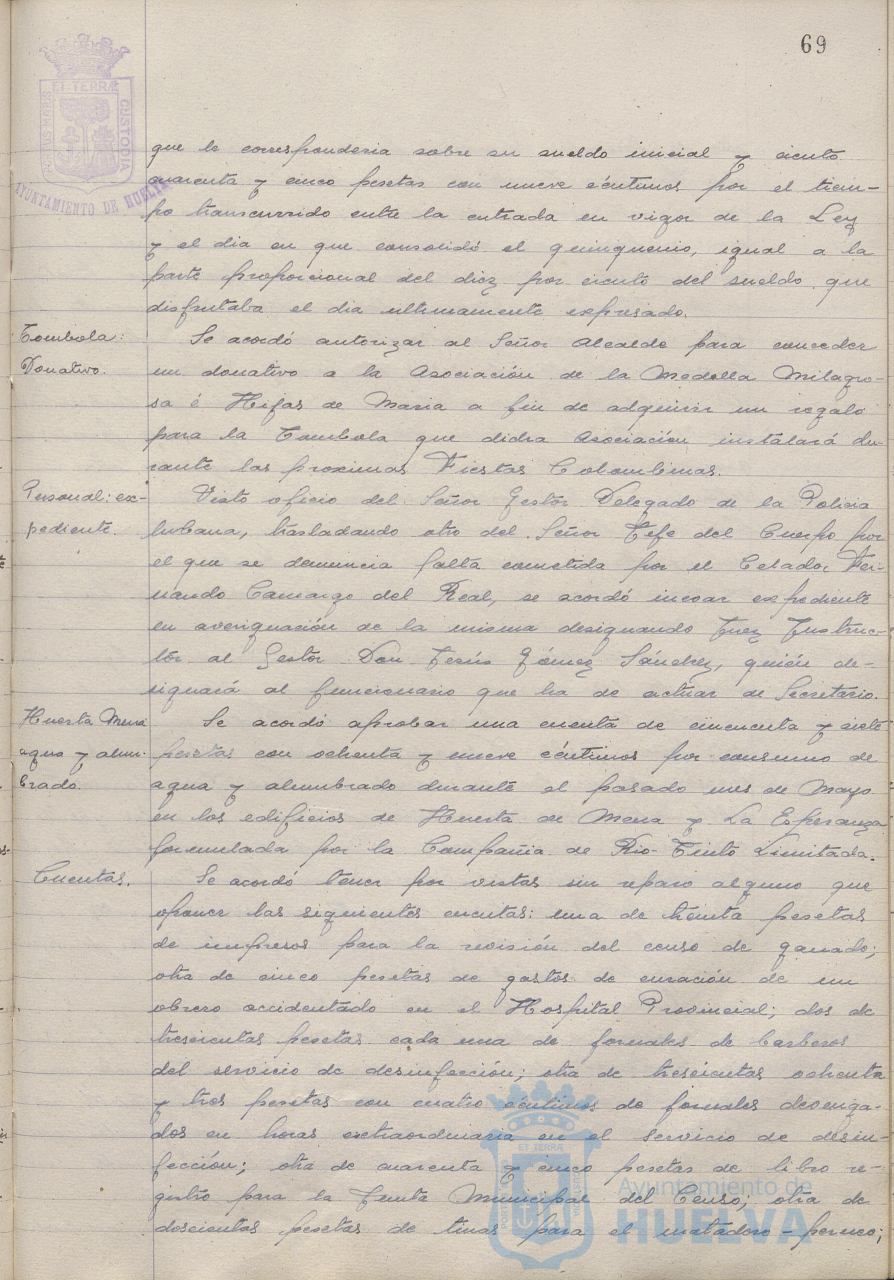 69
ET TERRÆ
PORTUS MARIS
CUSTODIA
AYUNTAMIENTO DE HUELVA
que le correspondería sobre su sueldo inicial y ciento
cuarenta y cinco pesetas con nueve céntimos por el tiem-
po transcurrido entre la entrada en vigor de la Ley
y el dia en que consolidó el quinquenio, igual a la
parte proporcional del diez por ciento del sueldo que
disfrutaba el dia ultimamente expresado.
Tombola:
Donativo.
Se acordó autorizar al Señor Alcalde para conceder
un donativo a la Asociación de la Medalla Milagro-
sa é Hijas de Maria a fin de adquirir un regalo
para la Tombola que dicha Asociación instalará du-
rante las proximas Fiestas Colombinas.
Personal: ex-
pediente.
Visto oficio del Señor Gestor Delegado de la Policia
Urbana, trasladando otro del Señor Jefe del Cuerpo por
el que se denuncia falta cometida por el Celador Fer-
nando Camargo del Real, se acordó incoar expediente
en averiguación de la misma designando Juez Instruc-
tor al Gestor Don Jesús Gómez Sánchez, quién de-
signará al funcionario que ha de actuar de Secretario.
Huerta Mena
agua y alum-
brado.
Se acordó aprobar una cuenta de cincuenta y siete
pesetas con ochenta y nueve céntimos por consumo de
agua y alumbrado durante el pasado mes de Mayo
en los edificios de Huerta de Mena y La Esperanza
formulada por la Compañia de Rio-Tinto Limitada.
Cuentas.
Se acordó tener por vistas sin reparo alguno que
oponer las siguientes cuentas: una de treinta pesetas
de impresos para la revisión del censo de ganado;
otra de cinco pesetas de gastos de curación de un
obrero accidentado en el Hospital Provincial; dos de
trescientas pesetas cada una de jornales de barberos
del servicio de desinfección; otra de trescientas ochenta
y tres pesetas con cuatro céntimos de jornales devenga-
dos en horas extraordinaria en el servicio de desin-
fección; otra de cuarenta y cinco pesetas de libro re-
gistro para la Junta Municipal del Censo; otra de
doscientas pesetas de tinas para el matadero-porcuno;
Ayuntamiento de
HUELVA